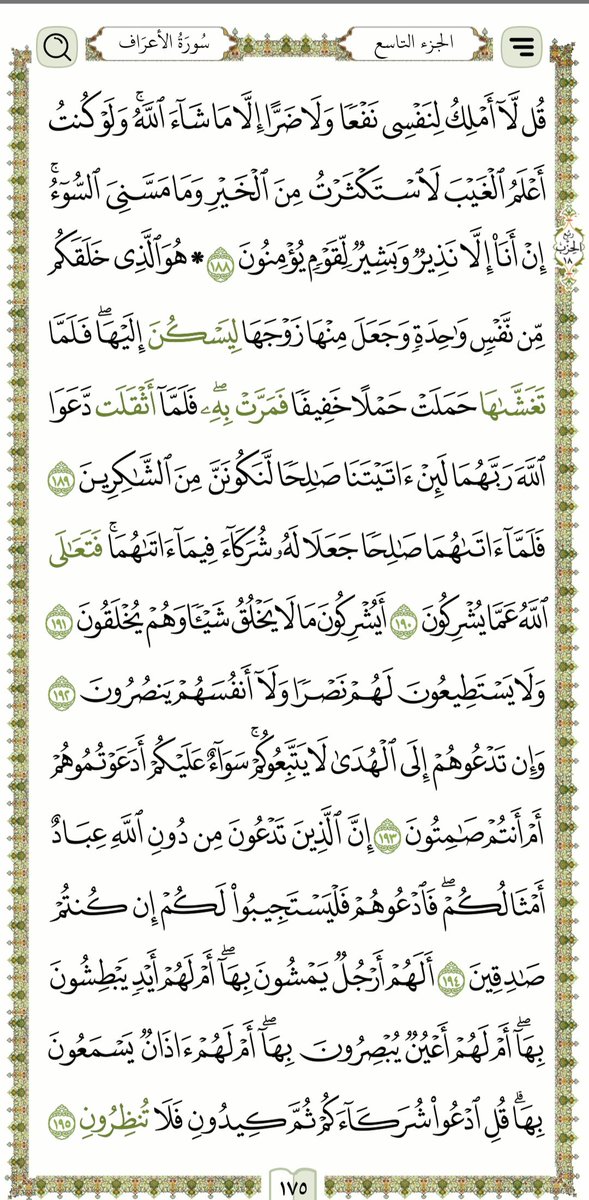 سُورَةُ الأَعرَاف الجزء التاسع
قُل لَّآ أَمْلِكُ لِنَفْسِى نَفْعًا وَلَا ضَرًّا إِلَّا مَا شَآءَ ٱللَّهُ ۚ وَلَوْ كُنتُ
أَعْلَمُ ٱلْغَيْبَ لَٱسْتَكْثَرْتُ مِنَ ٱلْخَيْرِ وَمَا مَسَّنِىَ ٱلسُّوٓءُ ۚ
إِنْ أَنَا۠ إِلَّا نَذِيرٌ وَبَشِيرٌ لِّقَوْمٍ يُؤْمِنُونَ ١٨٨ * هُوَ ٱلَّذِى خَلَقَكُم
ربع الحزب ١٨
مِّن نَّفْسٍ وَٰحِدَةٍ وَجَعَلَ مِنْهَا زَوْجَهَا لِيَسْكُنَ إِلَيْهَا ۖ فَلَمَّا
تَغَشَّىٰهَا حَمَلَتْ حَمْلًا خَفِيفًا فَمَرَّتْ بِهِۦ ۖ فَلَمَّآ أَثْقَلَت دَّعَوَا
ٱللَّهَ رَبَّهُمَا لَئِنْ ءَاتَيْتَنَا صَٰلِحًا لَّنَكُونَنَّ مِنَ ٱلشَّٰكِرِينَ ١٨٩
فَلَمَّآ ءَاتَىٰهُمَا صَٰلِحًا جَعَلَا لَهُۥ شُرَكَآءَ فِيمَآ ءَاتَىٰهُمَا ۚ فَتَعَٰلَى
ٱللَّهُ عَمَّا يُشْرِكُونَ ١٩٠ أَيُشْرِكُونَ مَا لَا يَخْلُقُ شَيْـًٔا وَهُمْ يُخْلَقُونَ ١٩١
وَلَا يَسْتَطِيعُونَ لَهُمْ نَصْرًا وَلَآ أَنفُسَهُمْ يَنصُرُونَ ١٩٢
وَإِن تَدْعُوهُمْ إِلَى ٱلْهُدَىٰ لَا يَتَّبِعُوكُمْ ۚ سَوَآءٌ عَلَيْكُمْ أَدَعَوْتُمُوهُمْ
أَمْ أَنتُمْ صَٰمِتُونَ ١٩٣ إِنَّ ٱلَّذِينَ تَدْعُونَ مِن دُونِ ٱللَّهِ عِبَادٌ
أَمْثَالُكُمْ ۖ فَٱدْعُوهُمْ فَلْيَسْتَجِيبُوا۟ لَكُمْ إِن كُنتُمْ
صَٰدِقِينَ ١٩٤ أَلَهُمْ أَرْجُلٌ يَمْشُونَ بِهَآ ۖ أَمْ لَهُمْ أَيْدٍ يَبْطِشُونَ
بِهَآ ۖ أَمْ لَهُمْ أَعْيُنٌ يُبْصِرُونَ بِهَآ ۖ أَمْ لَهُمْ ءَاذَانٌ يَسْمَعُونَ
بِهَا ۗ قُلِ ٱدْعُوا۟ شُرَكَآءَكُمْ ثُمَّ كِيدُونِ فَلَا تُنظِرُونِ ١٩٥
١٧٥